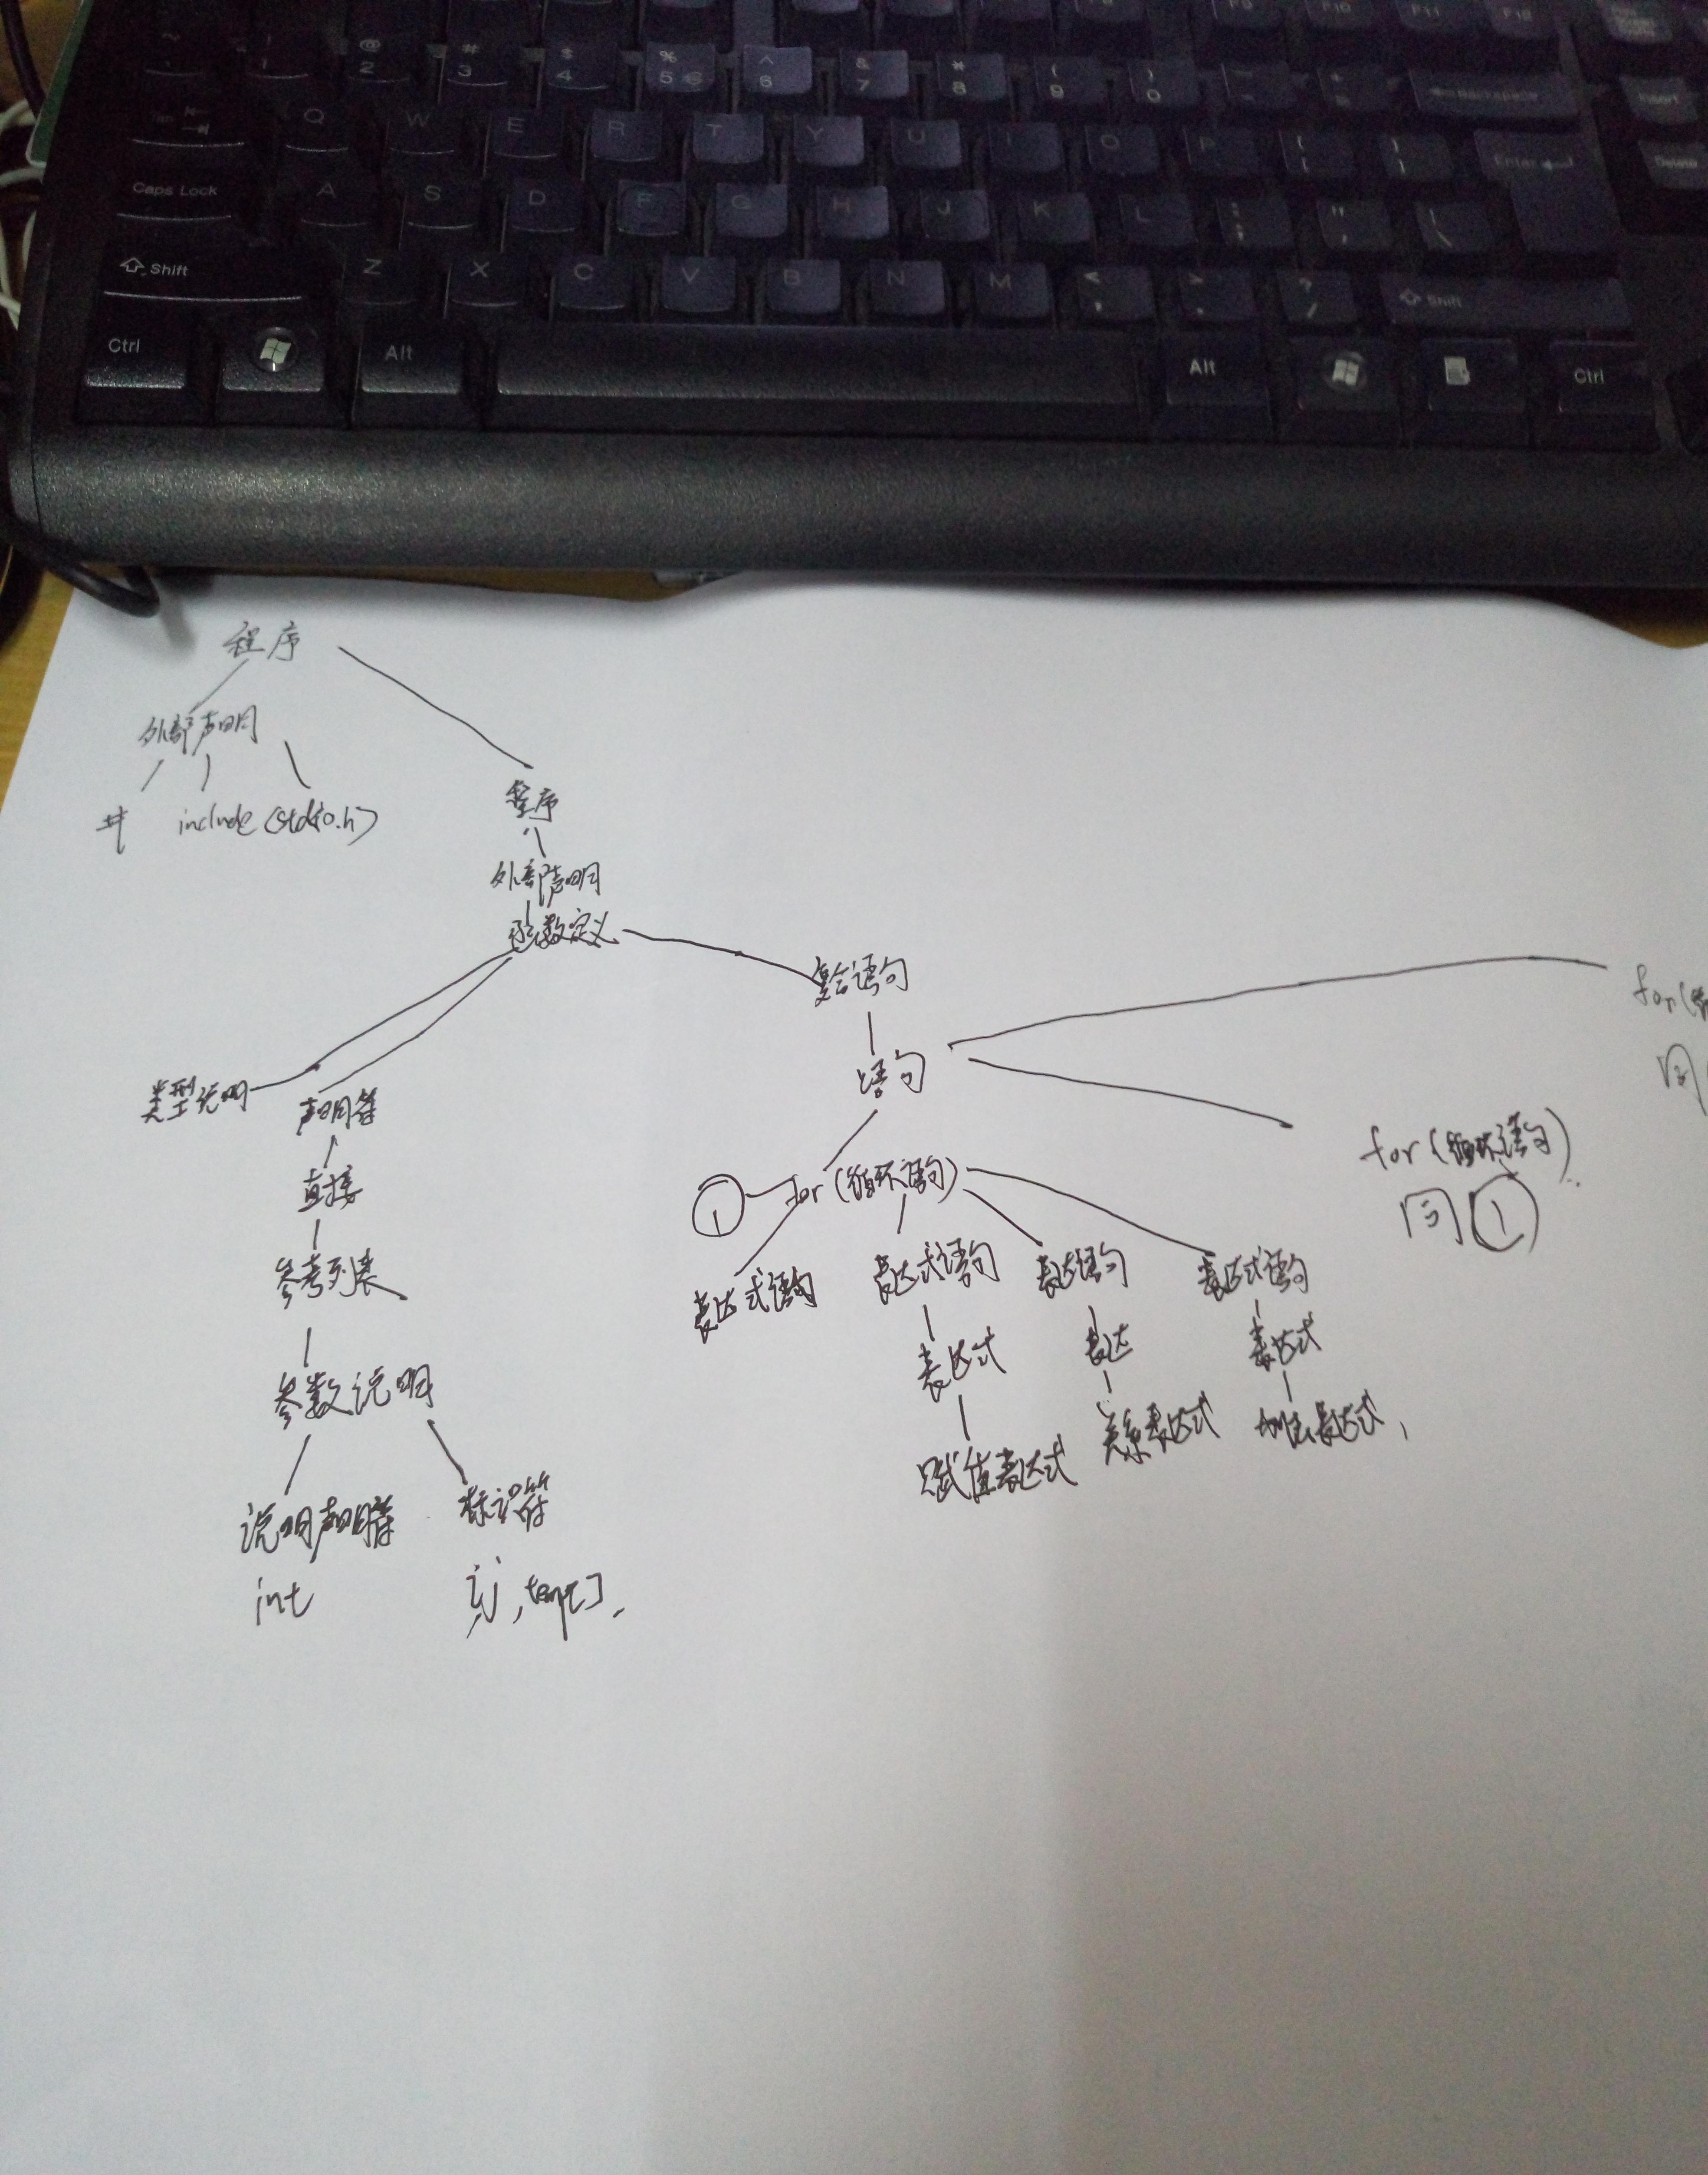 @ # $ % ^ & * ( )
2 3 4 5 € 6 7 8 9 0 Backspace Insert
Tab Q W E R T Y U I O P Enter Delete
Caps Lock A S D F G H J K L
Shift Z X C V B N M Shift
Ctrl Alt Alt Ctrl
程序
外部声明
# include (stdio.h)
程序
外部声明
函数定义
复合语句
for(循
语句
同
类型说明
声明符
for (循环语句)
同 ①
① for (循环语句)
直接
参考列表
表达式语句 表达式语句 表达语句 表达式语句
表达式 表达 表达式
参数说明
赋值表达式 关系表达式 加法表达式
说明声明符 标识符
int i,j,temp[],